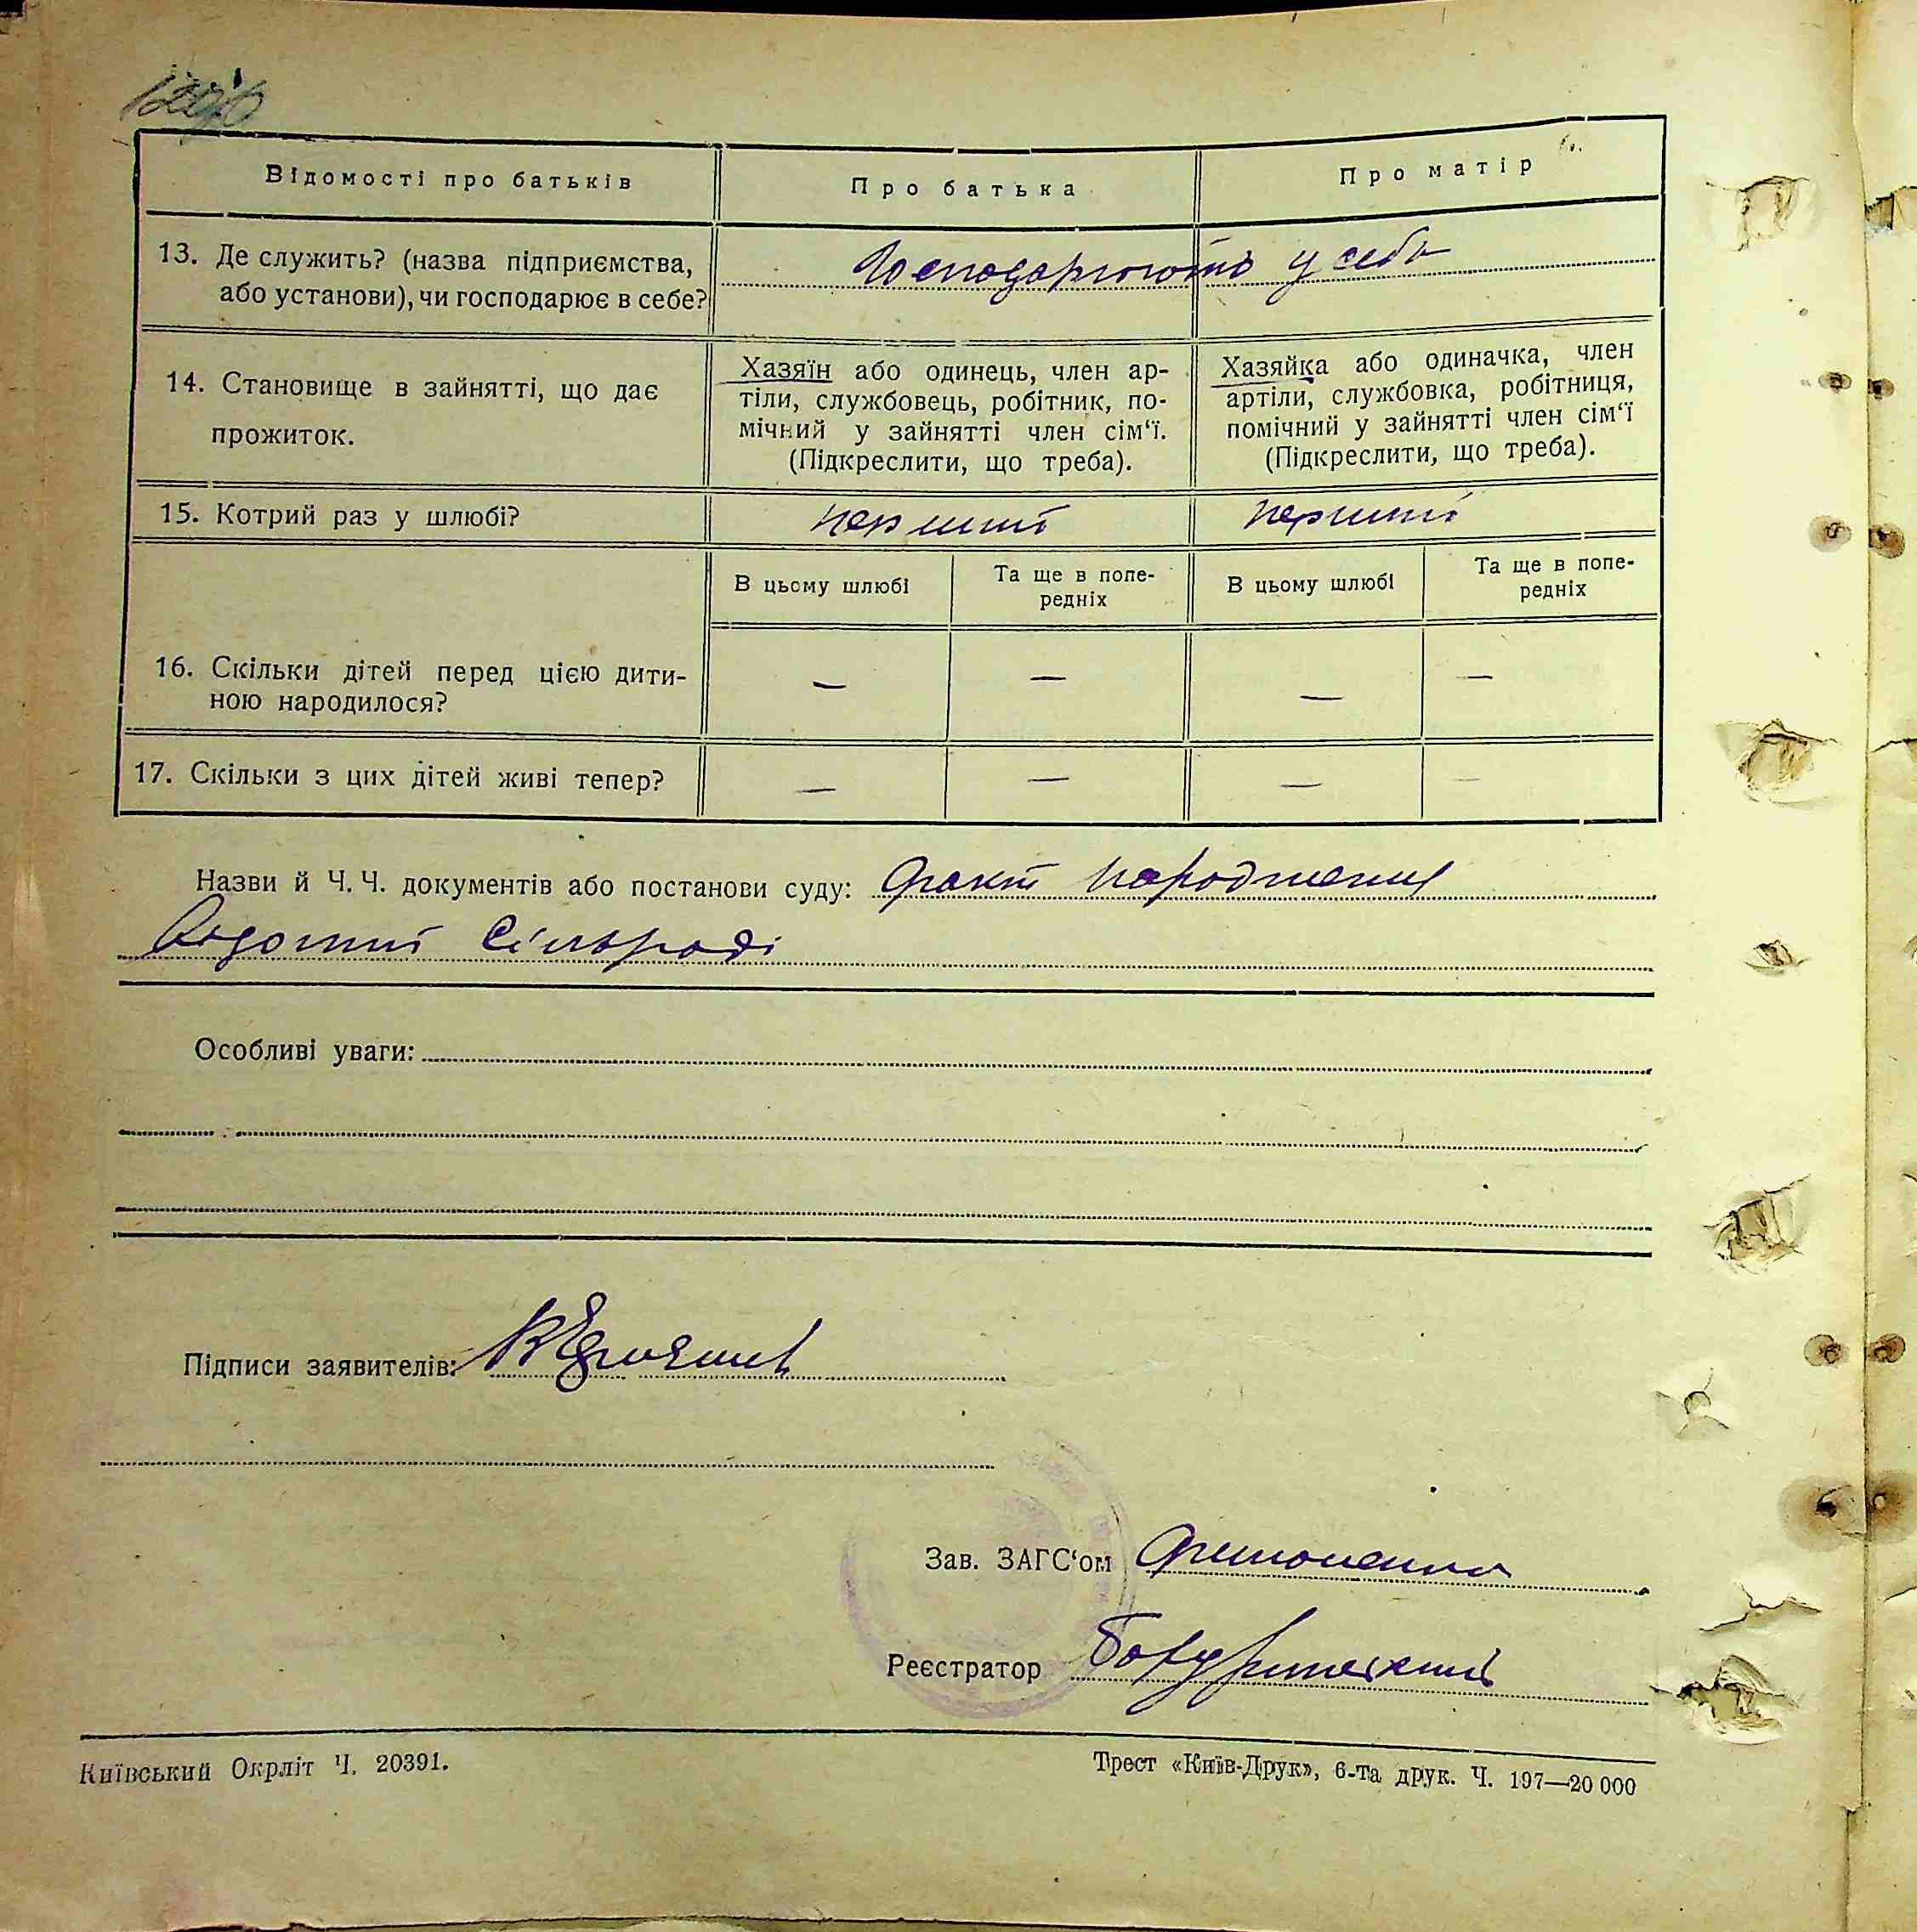 Відомості про батьків
Про батька
Про матір
13. Де служить? (назва підприємства,
або установи), чи господарює в себе?
Господарюють у себе
14. Становище в зайнятті, що дає
прожиток.
Хазяїн або одинець, член ар-
тіли, службовець, робітник, по-
мічний у зайнятті член сім‘ї.
(Підкреслити, що треба).
Хазяйка або одиначка, член
артіли, службовка, робітниця,
помічний у зайнятті член сім‘ї
(Підкреслити, що треба).
15. Котрий раз у шлюбі?
перший
перший
В цьому шлюбі
Та ще в попе-
редніх
В цьому шлюбі
Та ще в попе-
редніх
16. Скільки дітей перед цією дити-
ною народилося?
— — — —
17. Скільки з цих дітей живі тепер?
— — — —
Назви й Ч. Ч. документів або постанови суду: факт народження
відомий сільраді
Особливі уваги:
Підписи заявителів:
Зав. ЗАГС‘ом
Реєстратор
Київський Окрліт Ч. 20391.
Трест «Київ-Друк», 6-та друк. Ч. 197—20 000